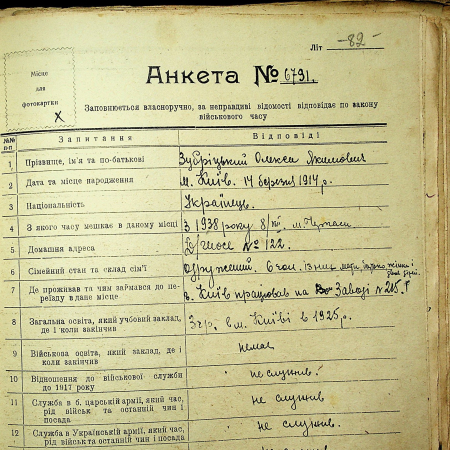 Літ -82-
Місце
для
фотокартки
х
Анкета № 6791.
Заповнюється власноручно, за неправдиві відомості відповідає по закону
військового часу
№№ п-п Запитання Відповіді
1 Прізвище, ім'я та по-батькові Зубріцький Олекса Якимович
2 Дата та місце народження м. Київ. 14 березня 1917 р.
3 Національність Українець.
4 З якого часу мешкає в даному місці З 1938 року 8/VII.
5 Домашня адреса № 122.
6 Сімейний стан та склад сім'ї Одружений. 6 чол.
7 Де проживав та чим займався до пе-
реїзду в дане місце в. Київ працював на Заводі № 225.
8 Загальна освіта, який учбовий заклад,
де і коли закінчив 3 гр. в м. Київі в 1925 р.
9 Військова освіта, який заклад, де і
коли закінчив немає
10 Відношення до військової служби
до 1917 року не служив.
11 Служба в б. царській армії, який час,
рід військ та останній чин і
посада не служив
12 Служба в Українській армії, який час,
рід військ та останній чин і посада не служив.